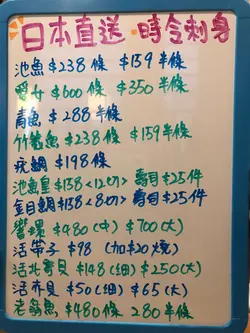 日本直送·時令刺身
池魚$238條 $139半條
$600條 $350半條
青魚 $288半條
竹筴魚$238條 $159半條
$198條
池魚皇$138<12切> 壽司$25件
金目鯛$138<8切> 壽司$25件
響環$480(中) $700(大)
活帶子 $98 (加$20燒)
活北寄貝 $148(細) $250(大)
活赤貝 $50(細) $65(大)
$480條 280半條